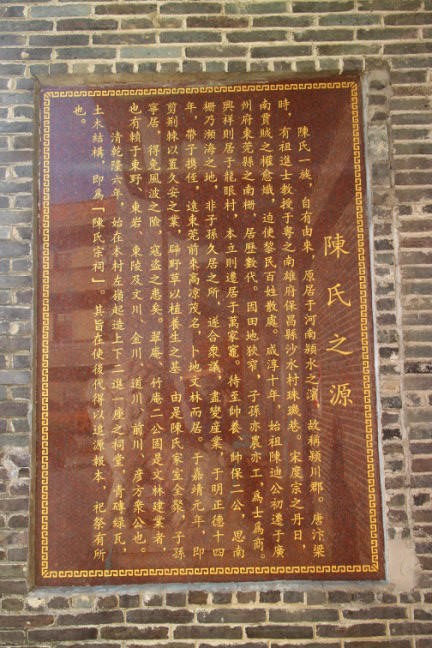 陳氏之源
陳氏一族，自有由來，原居于河南潁水之濱，故稱潁川郡。唐汴梁
時，有祖進士教授于粵之南雄府保昌縣沙水村珠璣巷。宋度宗之丹日，
南賈賊之權愈熾，迫使黎民百姓散處。咸淳十年，始祖陳迪公初遷于廣
州府東莞縣之南柵，居歷數代。因田地狹窄，子孫亦農亦工，爲士爲商。
興祥則居于龍眼村，本立則遷居于萬家竃。待至帥養、帥保二公，思南
柵乃瀕海之地，非子孫久居之所，遂合衆議，盡變産業，于明正德十四
年，帶子携侄，遠東莞前來高凉茂名，卜地文林而居。于嘉靖元年，即
剪荆棘以置久安之業，辟野草以植養生之基。由是陳氏家室全聚，子孫
寧居，得免風波之險，寇盗之患矣。翠庵、竹庵二公固是文林建業者，
也有賴于東野、東岩、東陵及文川、金川、道川、前川、彦方衆公也。
清乾隆六年，始在本村左嶺起造上下二進一座之祠堂，青磚緑瓦，
土木結構，即爲「陳氏宗祠」。其旨在使後代得以追源報本，祀祭有所
也。